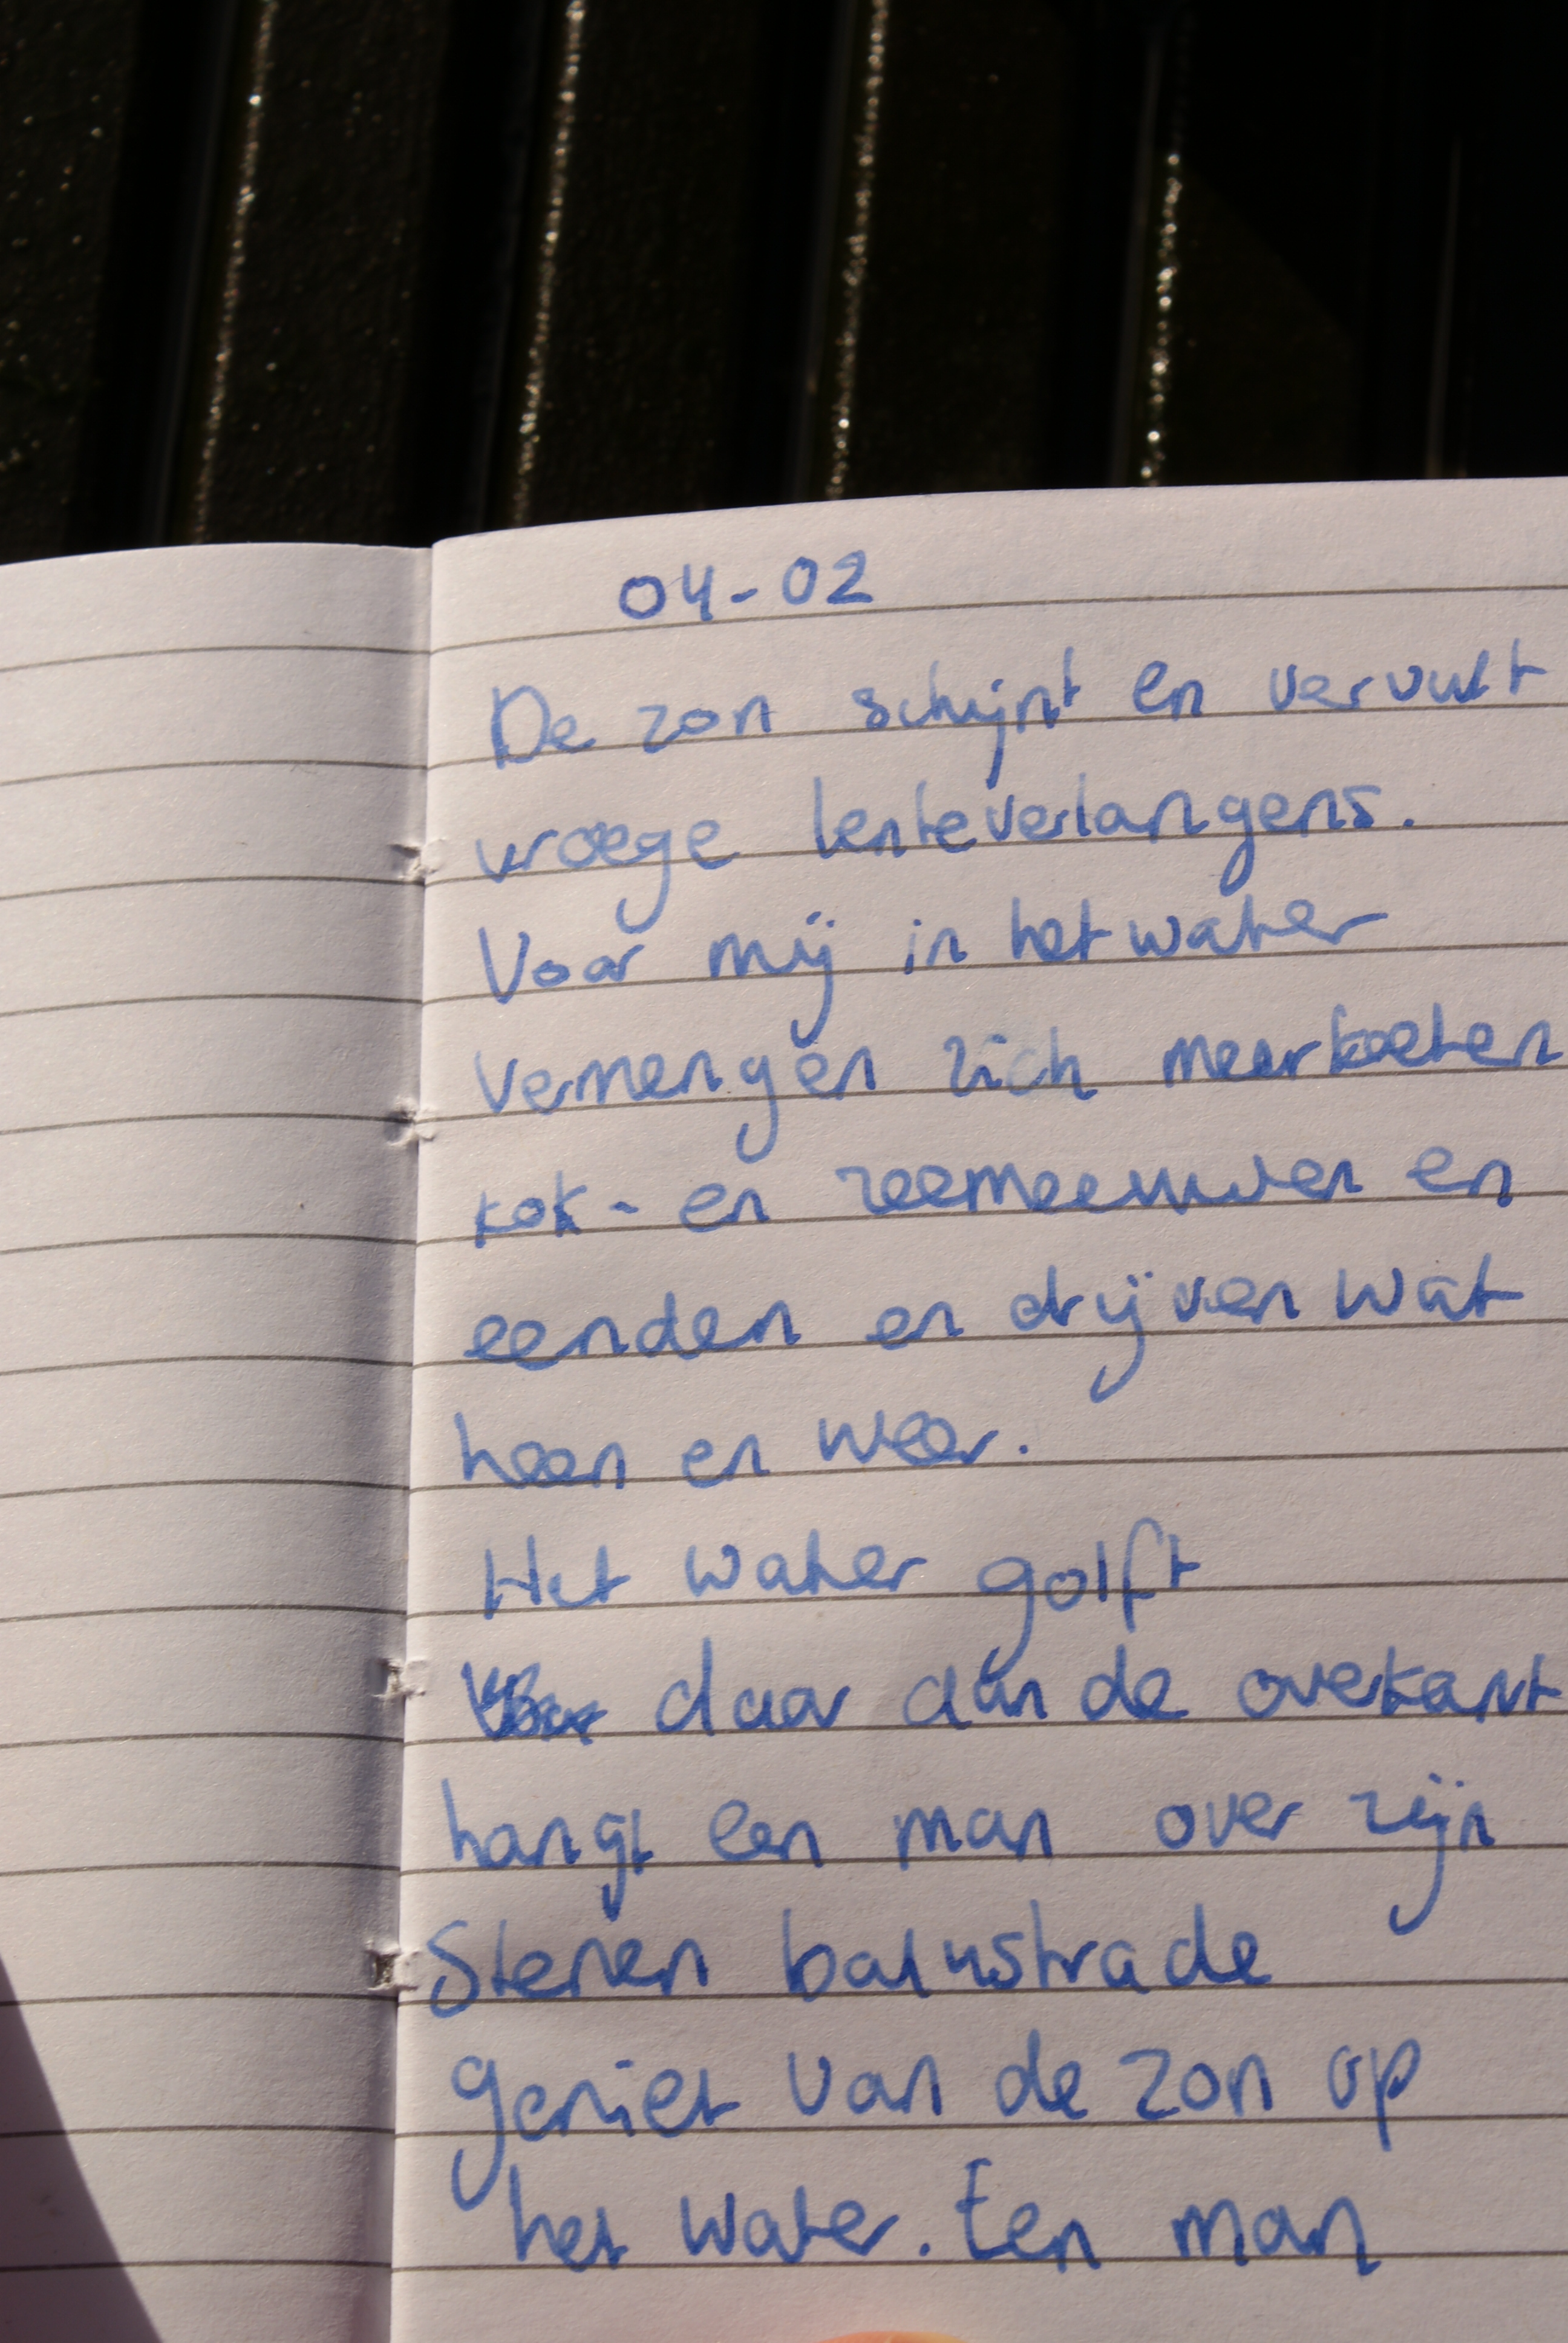 04-02
De zon schijnt en vervult
vroege lenteverlangens.
Voor mij in het water
vermengen zich meerkoeten
kok- en zeemeeuwen en
eenden en drijven wat
heen en weer.
Het water golft
daar aan de overkant
hangt een man over zijn
Stenen balustrade
geniet van de zon op
het water. Een man